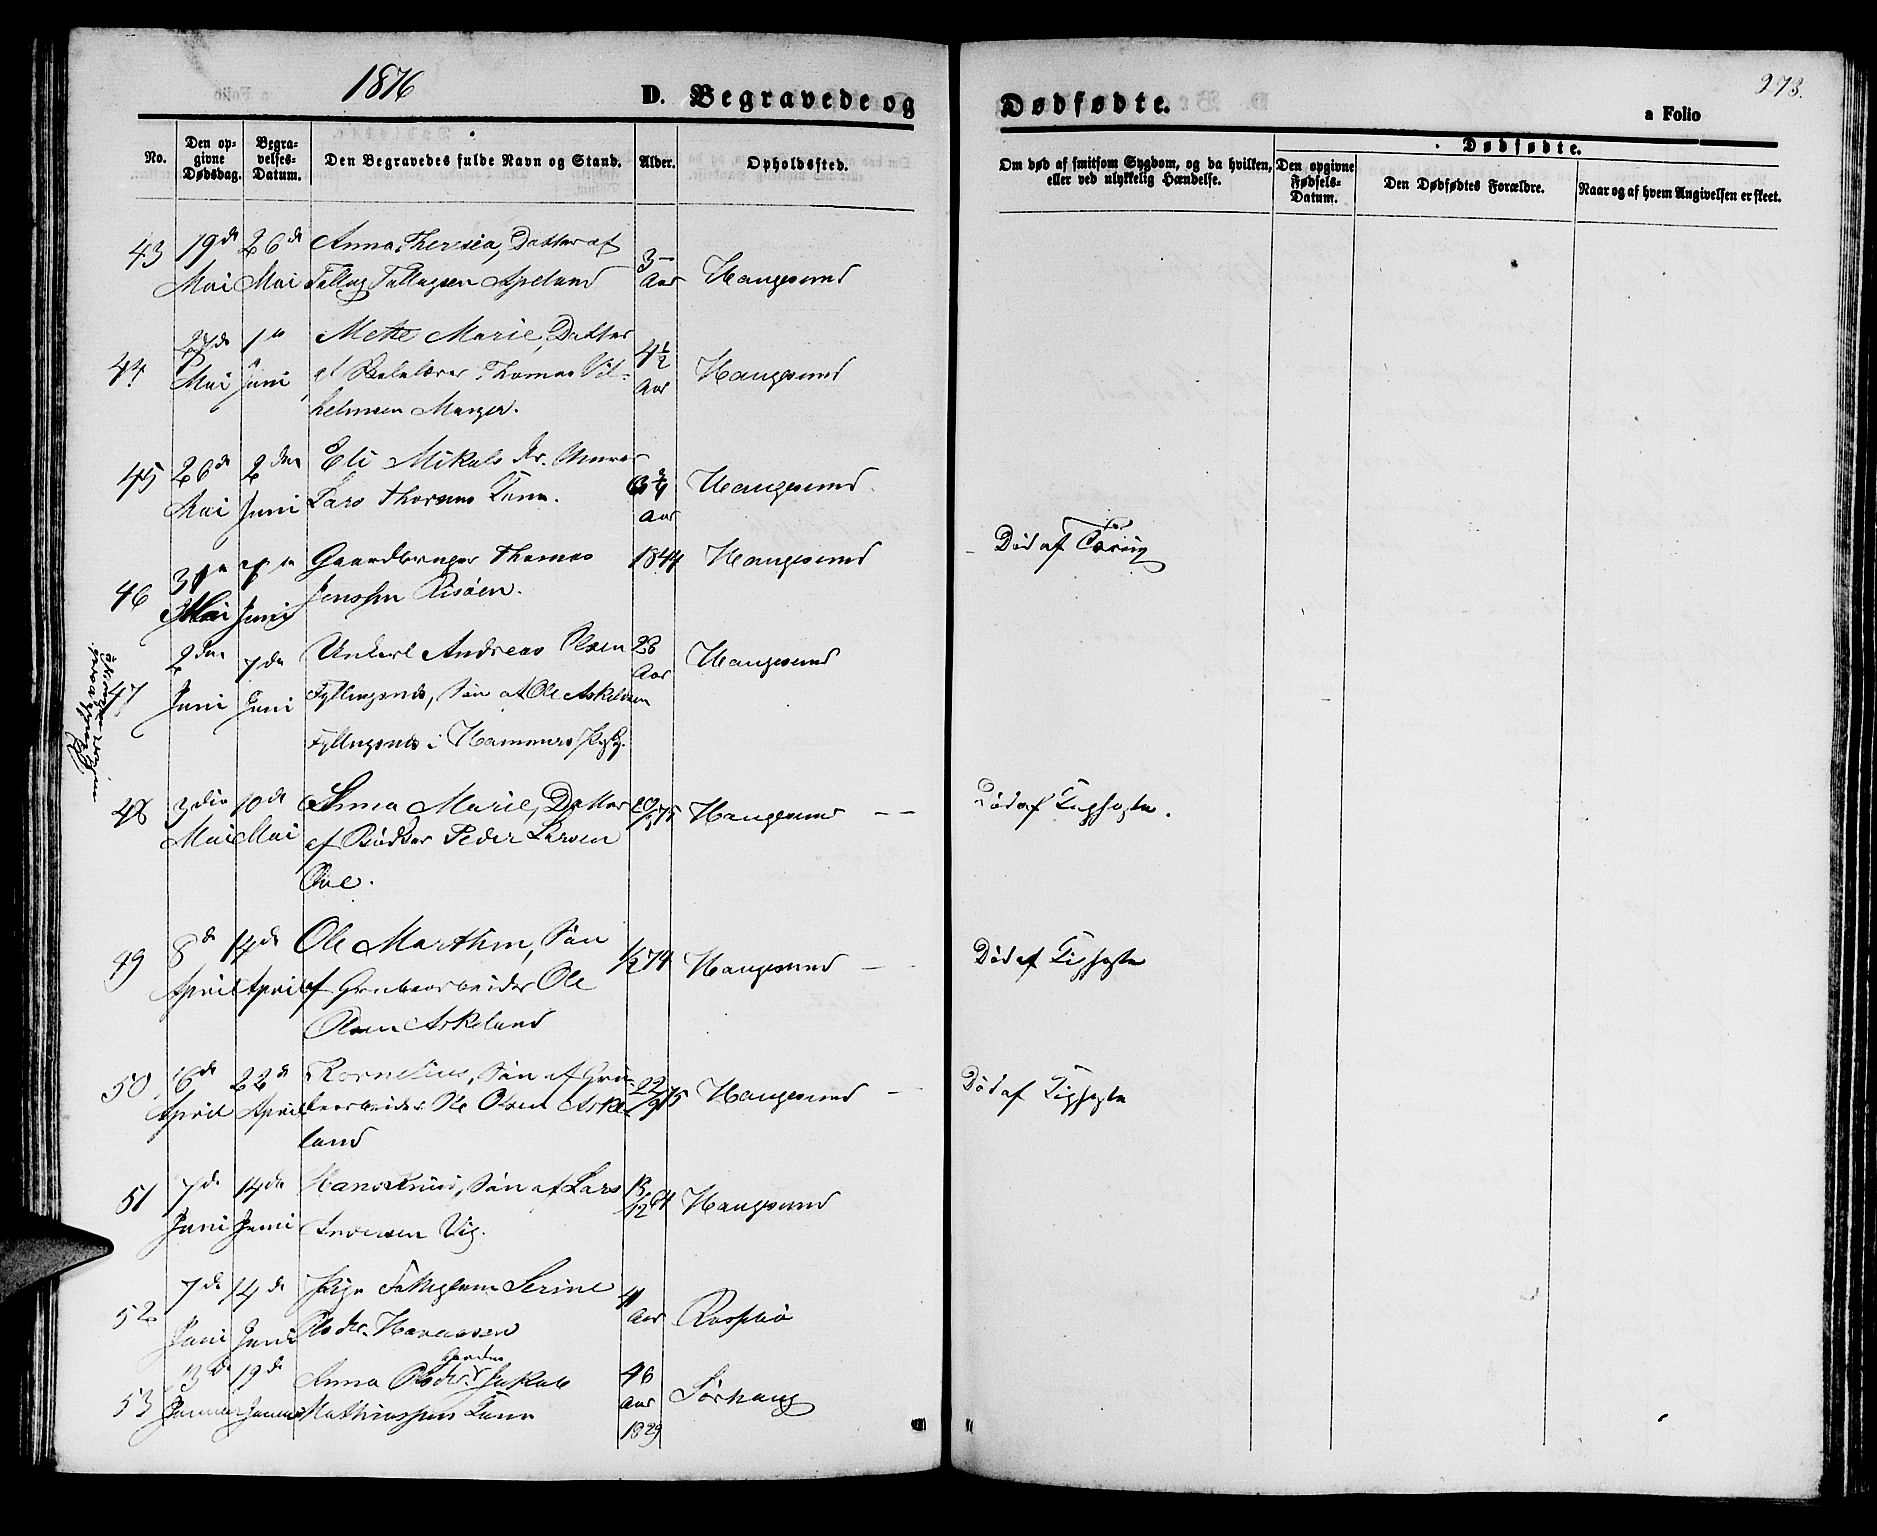 1876
D. Begravede og
Dødfødte.
273.
a Folio
No.
Den op-
givne
Dødsdag.
Begra-
velses-
Datum.
Den Begravedes fulde Navn og Stand.
Alder.
Opholdssted.
Om død af smitsom Sygdom, og da hvilken,
eller ved ulykkelig Hændelse.
Dødfødte.
Den opgivne
Fødsels-
Datum.
Den Dødfødtes Forældre.
Naar og af hvem Angivelsen er skeet.
43 19de 26de Anna Theresia, Datter af 3
Mai Mai Tallag Tallagsen Apeland Aar Haugesund
44 27de 1ste Mette Marie, Datter 4½
Mai Juni af Skolelærer Thomas Vil- Aar Haugesund
helmsen Manger.
45 26de 2den Eli Mikals Dr. Murer
Mai Juni Lars Thorsens Tunn. Aar Haugesund
46 31te Gaardbruger Thomas 1844 Haugesund Død af Tæring
Mai Juni Jenssen Risøen.
47 2den 7de Unkarl Andreas Olsen 23 Haugesund
Juni Juni Fyllingsnes, Søn af Ole Askelsen Aar
Fyllingsnes i Hammers Prgj.
48 3die 10de Anna Marie, Datter 75 Haugesund Død af Kighoste.
Mai Mai af Bødker Peder Larsen
49 8de 14de Ole Marthin, Søn 74 Haugesund Død af Kighoste
April April af Grubearbeider Ole
Olsen Askeland
50 16de 22de Kornelius, Søn af Gru- 22/9 75 Haugesund Død af Kighoste
April April bearbeider Ole Olsen Aske-
land
51 7de 14de Hans Knud, Søn af Lars 13/12 64 Haugesund
Juni Juni Andersen Vig.
52 7de 14de Pige Serine
Juni Juni Hansen Aar Rossebø
53 13de 19de Anna Pedersdr. Jakob 46
Januar Januar Mathiassen Tunn Aar Sørhaug
1829